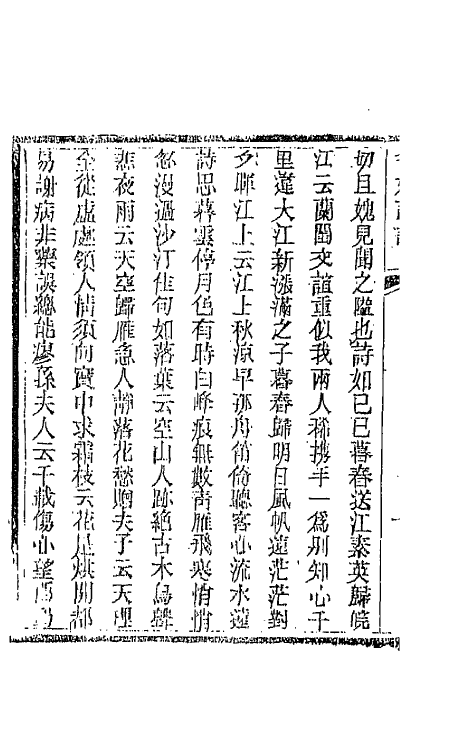 切且媿見聞之隘也詩如己巳暮春送江素英歸皖
江云蘭閨交誼重似我兩人稀攜手一爲別知心千
里違大江新漲滿之子暮春歸明日風帆遠茫茫對
夕暉江上云江上秋源早孤舟倚聽客心流水遠
詩思暮雲停月色有時白峰痕無數青雁飛寒悄悄
忽漫過沙汀佳句如落葉云空山人跡絶古木鳥聲
悲夜雨云天空歸雁急人靜落花愁贈夫子云天理
全從虛處領人情須向實中求霜枝云花是烘開都
易謝病非藥誤總能廖孫夫人云千載傷心望